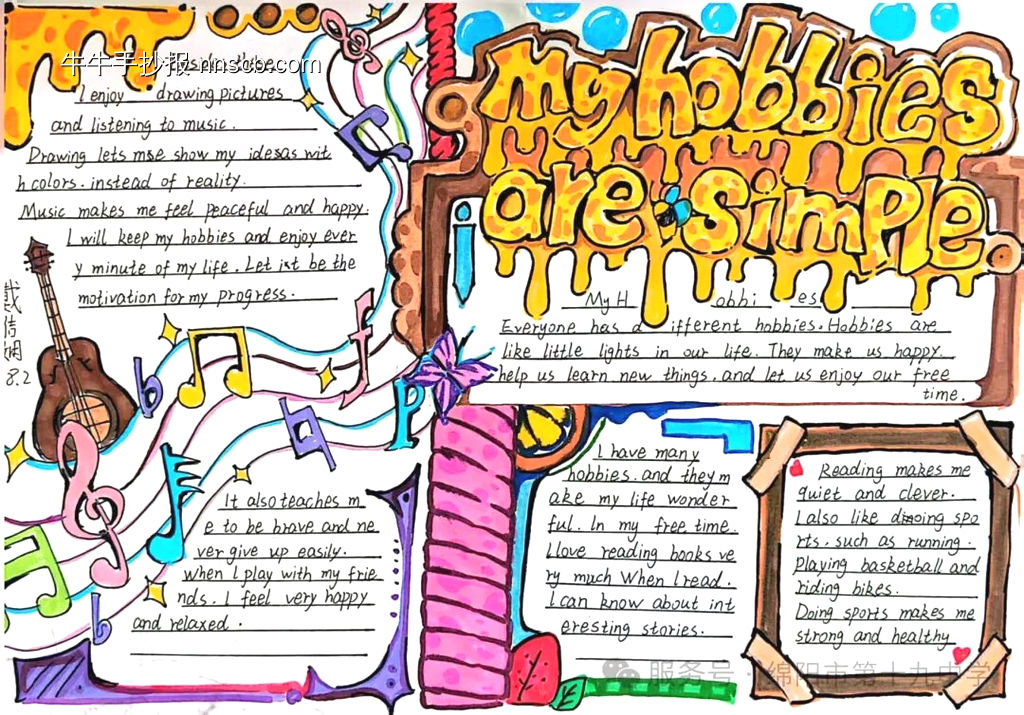 my hobbies
are simple
My Hobbi es
Everyone has different hobbies. Hobbies are
like little lights in our life. They make us happy.
help us learn new things. and let us enjoy our free
time.
I have many
hobbies. and they m
ake my life wonder
ful. In my free time.
I love reading books ve
ry much When I read.
I can know about int
eresting stories.
Reading makes me
quiet and clever.
I also like dooing spo
rts. such as running.
Playing basketball and
riding bikes.
Doing sports makes me
strong and healthy
It also teaches m
e to be brave and ne
ver give up easily.
when I play with my frie
nds. I feel very happy
and relaxed.
牛牛手抄报 nnscb.com
I enjoy drawing pictures
and listening to music.
Drawing lets me show my ideas wit
h colors. instead of reality.
Music makes me feel peaceful and happy.
I will keep my hobbies and enjoy ever
y minute of my life. Let it be the
motivation for my progress.
8.2
服务号·绵阳市第十九中学